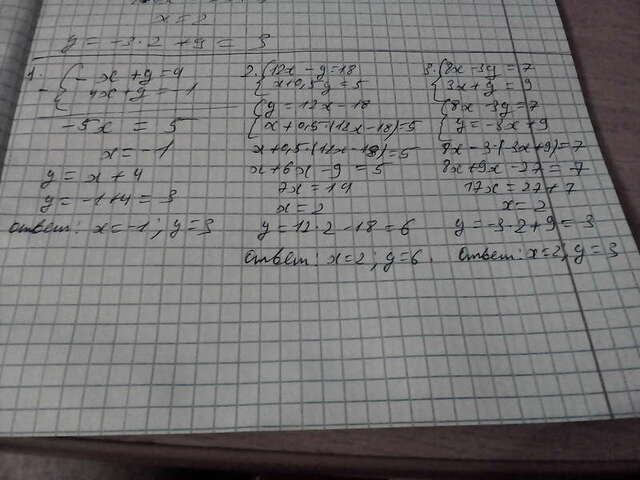 x = 2
y = -3·2 + 9 = 3
1. { - x + y = 4
- { 4x + y = -1
-5x = 5
x = -1
y = x + 4
y = -1+4 = 3
Ответ: x = -1; y = 3
2. { 12x - y = 18
{ x + 0,5y = 5
{ y = 12x - 18
{ x + 0,5·(12x - 18) = 5
x + 0,5·(12x - 18) = 5
x + 6x - 9 = 5
7x = 14
x = 2
y = 12·2 - 18 = 6
Ответ: x = 2; y = 6.
3. { 8x - 3y = 7
{ 3x + y = 9
{ 8x - 3y = 7
{ y = -3x + 9
8x - 3·(-3x + 9) = 7
8x + 9x - 27 = 7
17x = 27 + 7
x = 2
y = -3·2 + 9 = 3
Ответ: x = 2, y = 3